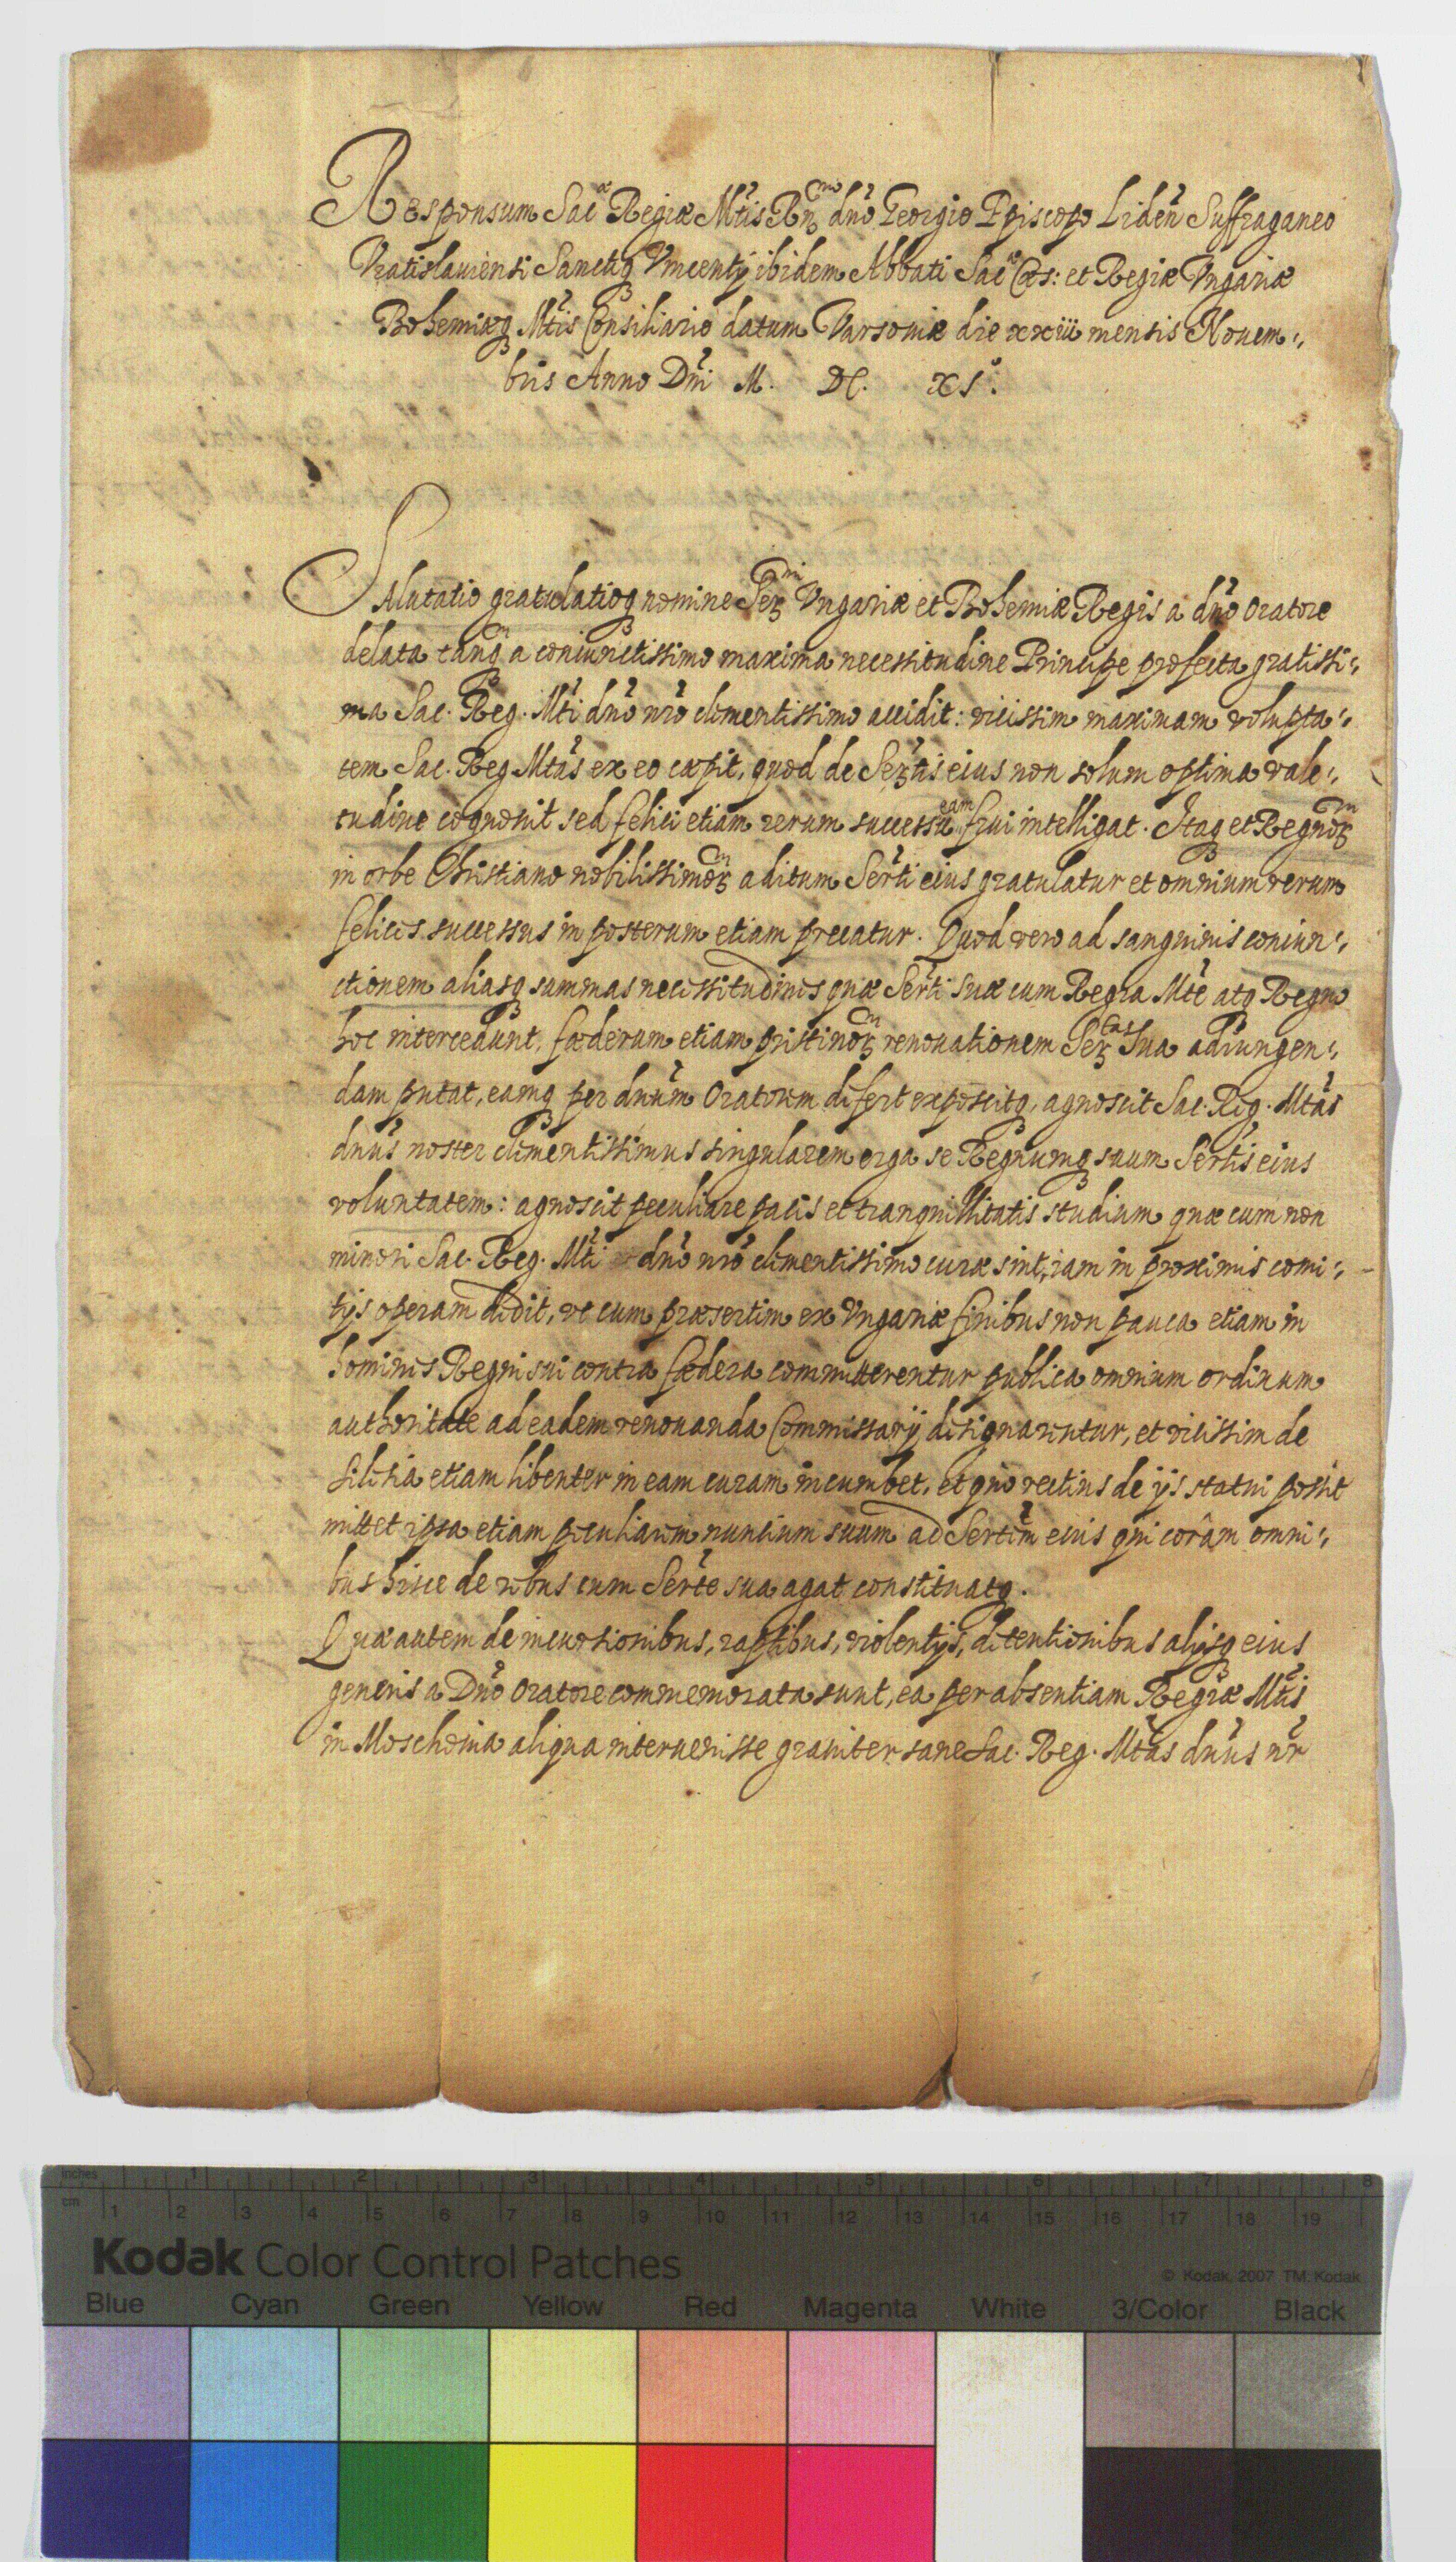 Responsum Sacæ Regiæ Mtis Rmo dno Georgio Episcopo Liden Suffraganeo
Vratislauiensi Sanctiq Vincentij ibidem Abbati Sacæ Cæs: et Regiæ Vngariæ
Bohemiæq Mtis Consiliario datum Varsouiæ die xxiii mensis Nouem:,
bris Anno Dni M. DC. XI°.
Salutatio gratulatioq nomine Sermi Vngariæ et Bohemiæ Regis a dno Oratore
delata tanq a coniunctissimo maxima necessitudine Principe profecta gratissi:,
ma Sac. Reg. Mti dno nro clementissimo accidit: vicissim maximam volupta:,
tem Sac. Reg Mtas ex eo cæpit, quod de Sertis eius non solum optima vale:,
tudine cognoscit sed felici etiam rerum successu eam frui intelligat. Itaq et Regnorm
in orbe Christiano nobilissimorm aditum Serti eius gratulatur et omnium rerum
felices successus in posterum etiam precatur. Quod vero ad sanguinis coniun:,
ctionem aliasq summas necessitudines quæ Serti suæ cum Regia Mte atq Regno
hoc intercedunt, fœderum etiam pristinorm renouationem Sertas sua adiungen:,
dam putat, eamq per dnum Oratorem defert exposcitq, agnoscit Sac. Reg. Mtas
dnus noster clementissimus singularem erga se Regnumq suum Sertis eius
voluntatem: agnoscit peculiare pacis et tranquillitatis studium quæ cum non
minori Sac. Reg. Mti dno nro clementissimo curæ sint, iam in proximis comi:,
tijs operam dedit, vt cum præsertim ex Vngariæ finibus non pauca etiam in
homines Regni sui contra fœdera committerentur publica omnium ordinum
authoritate ad eadem renouanda Commissarij designarentur, et vicissim de
Silesia etiam libenter in eam curam incumbet, et quo rectius de ijs statui possit
mittet ipsa etiam peculiarem nuntium suum ad Sertem eius qui coràm omni:,
bus hisce de rebus cum Serte sua agat constituatq.
Quæ autem de incursionibus, raptibus, violentijs, detentionibus alijsq eius
generis a Dno Oratore commemorata sunt, ea per absentiam Regiæ Mtis
in Moschouia aliqua interuenisse grauiter sane Sac. Reg. Mtas dnus nr
inches 1 2 3 4 5 6 7 8
cm 1 2 3 4 5 6 7 8 9 10 11 12 13 14 15 16 17 18 19
Kodak Color Control Patches
© Kodak, 2007 TM. Kodak
Blue Cyan Green Yellow Red Magenta White 3/Color Black